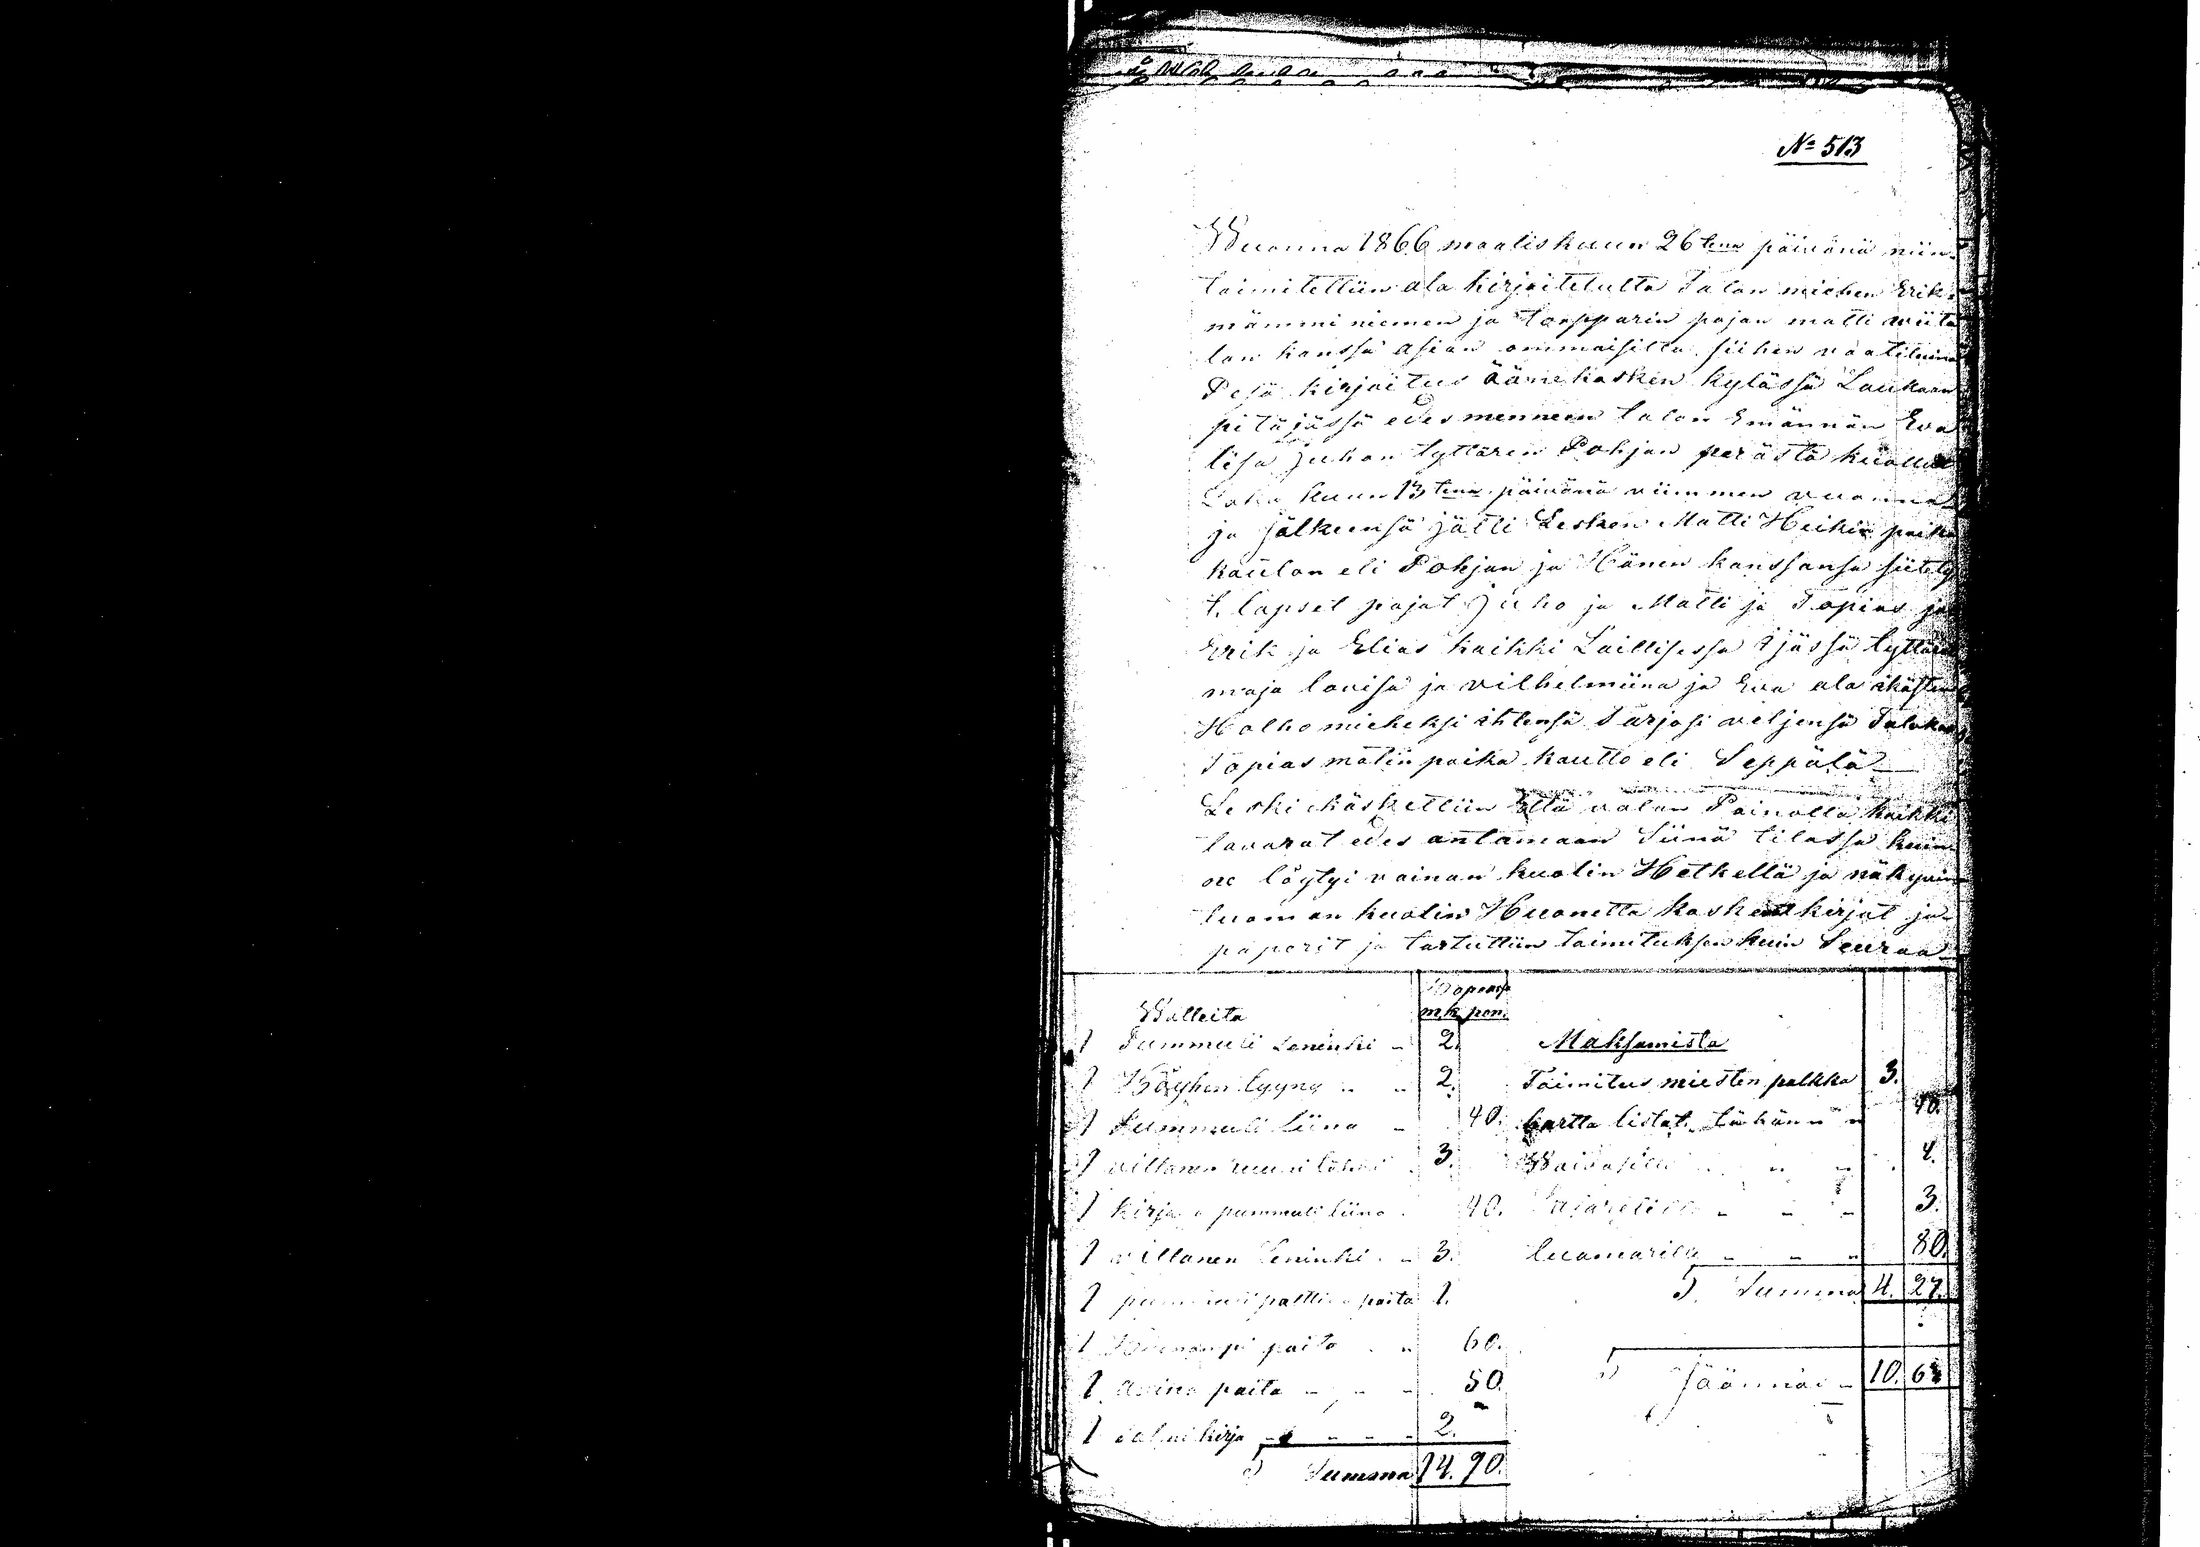 No 513
Wuonna 1866 maaliskuun 26tena päivänä niin
toimitettiin ala kirjoitetulta Talon miehen Erik
mämmi niemen ja torpparin pojan matti wiita
lan kanssa asian ommaisilta siihen vaatituna
Pesä kirjoitus Äänekosken kylässä Laukaan
pitäjässä edesmenneen talon Emännän Eva
lisa Juhon tyttären Pohjan perästä kuollut
Loka kuun 13tena päivänä viimmen vuonna
ja jälkeensä jätti Lesken Matti Heikin poika
kauton eli Pohjan ja Hänen kanssansa siitety
t. lapset pojat Juho ja Matti ja Topias ja
Erik ja Elias kaikki Laillisessa Ijässä tyttäret
maja lovisa ja vilhelmiina ja Eva ala ikäisten
Holhomieheksi ihtensä Tarjosi veljensä Talokas
Topias matin poika kautto eli Seppälä
Leski käskettiin Että valan Painolla kaikki
tavarat edes antamaan Siinä tilassa kuin
ne löytyi vainan kuolin Hetkellä ja näkyviin
tuoman kuolin Huonetta koskevat kirjat ja
paperit ja tartuttiin toimituksen kuin Seuraa
Hopeassa
Walleita mk pen.
1 Pummuli Leninki 2.
1 Köyhen tyyny 2.
1 Pummuli liina 40.
1 villanen 3.
1 kirjava pummuli liina 40.
1 villanen Leninki 3.
1 pummuli palttina paita 1.
1 Huonompi paita 60.
1 aivina paita 50.
1 Salmikirja 2.
Summa 14. 90.
Maksamista
Toimitus miesten palkka 3.
kartta listat. Tähän 40.
Waivasille 4.
3.
tuomarille 80.
Summa 4. 27.
Jäännös 10. 63